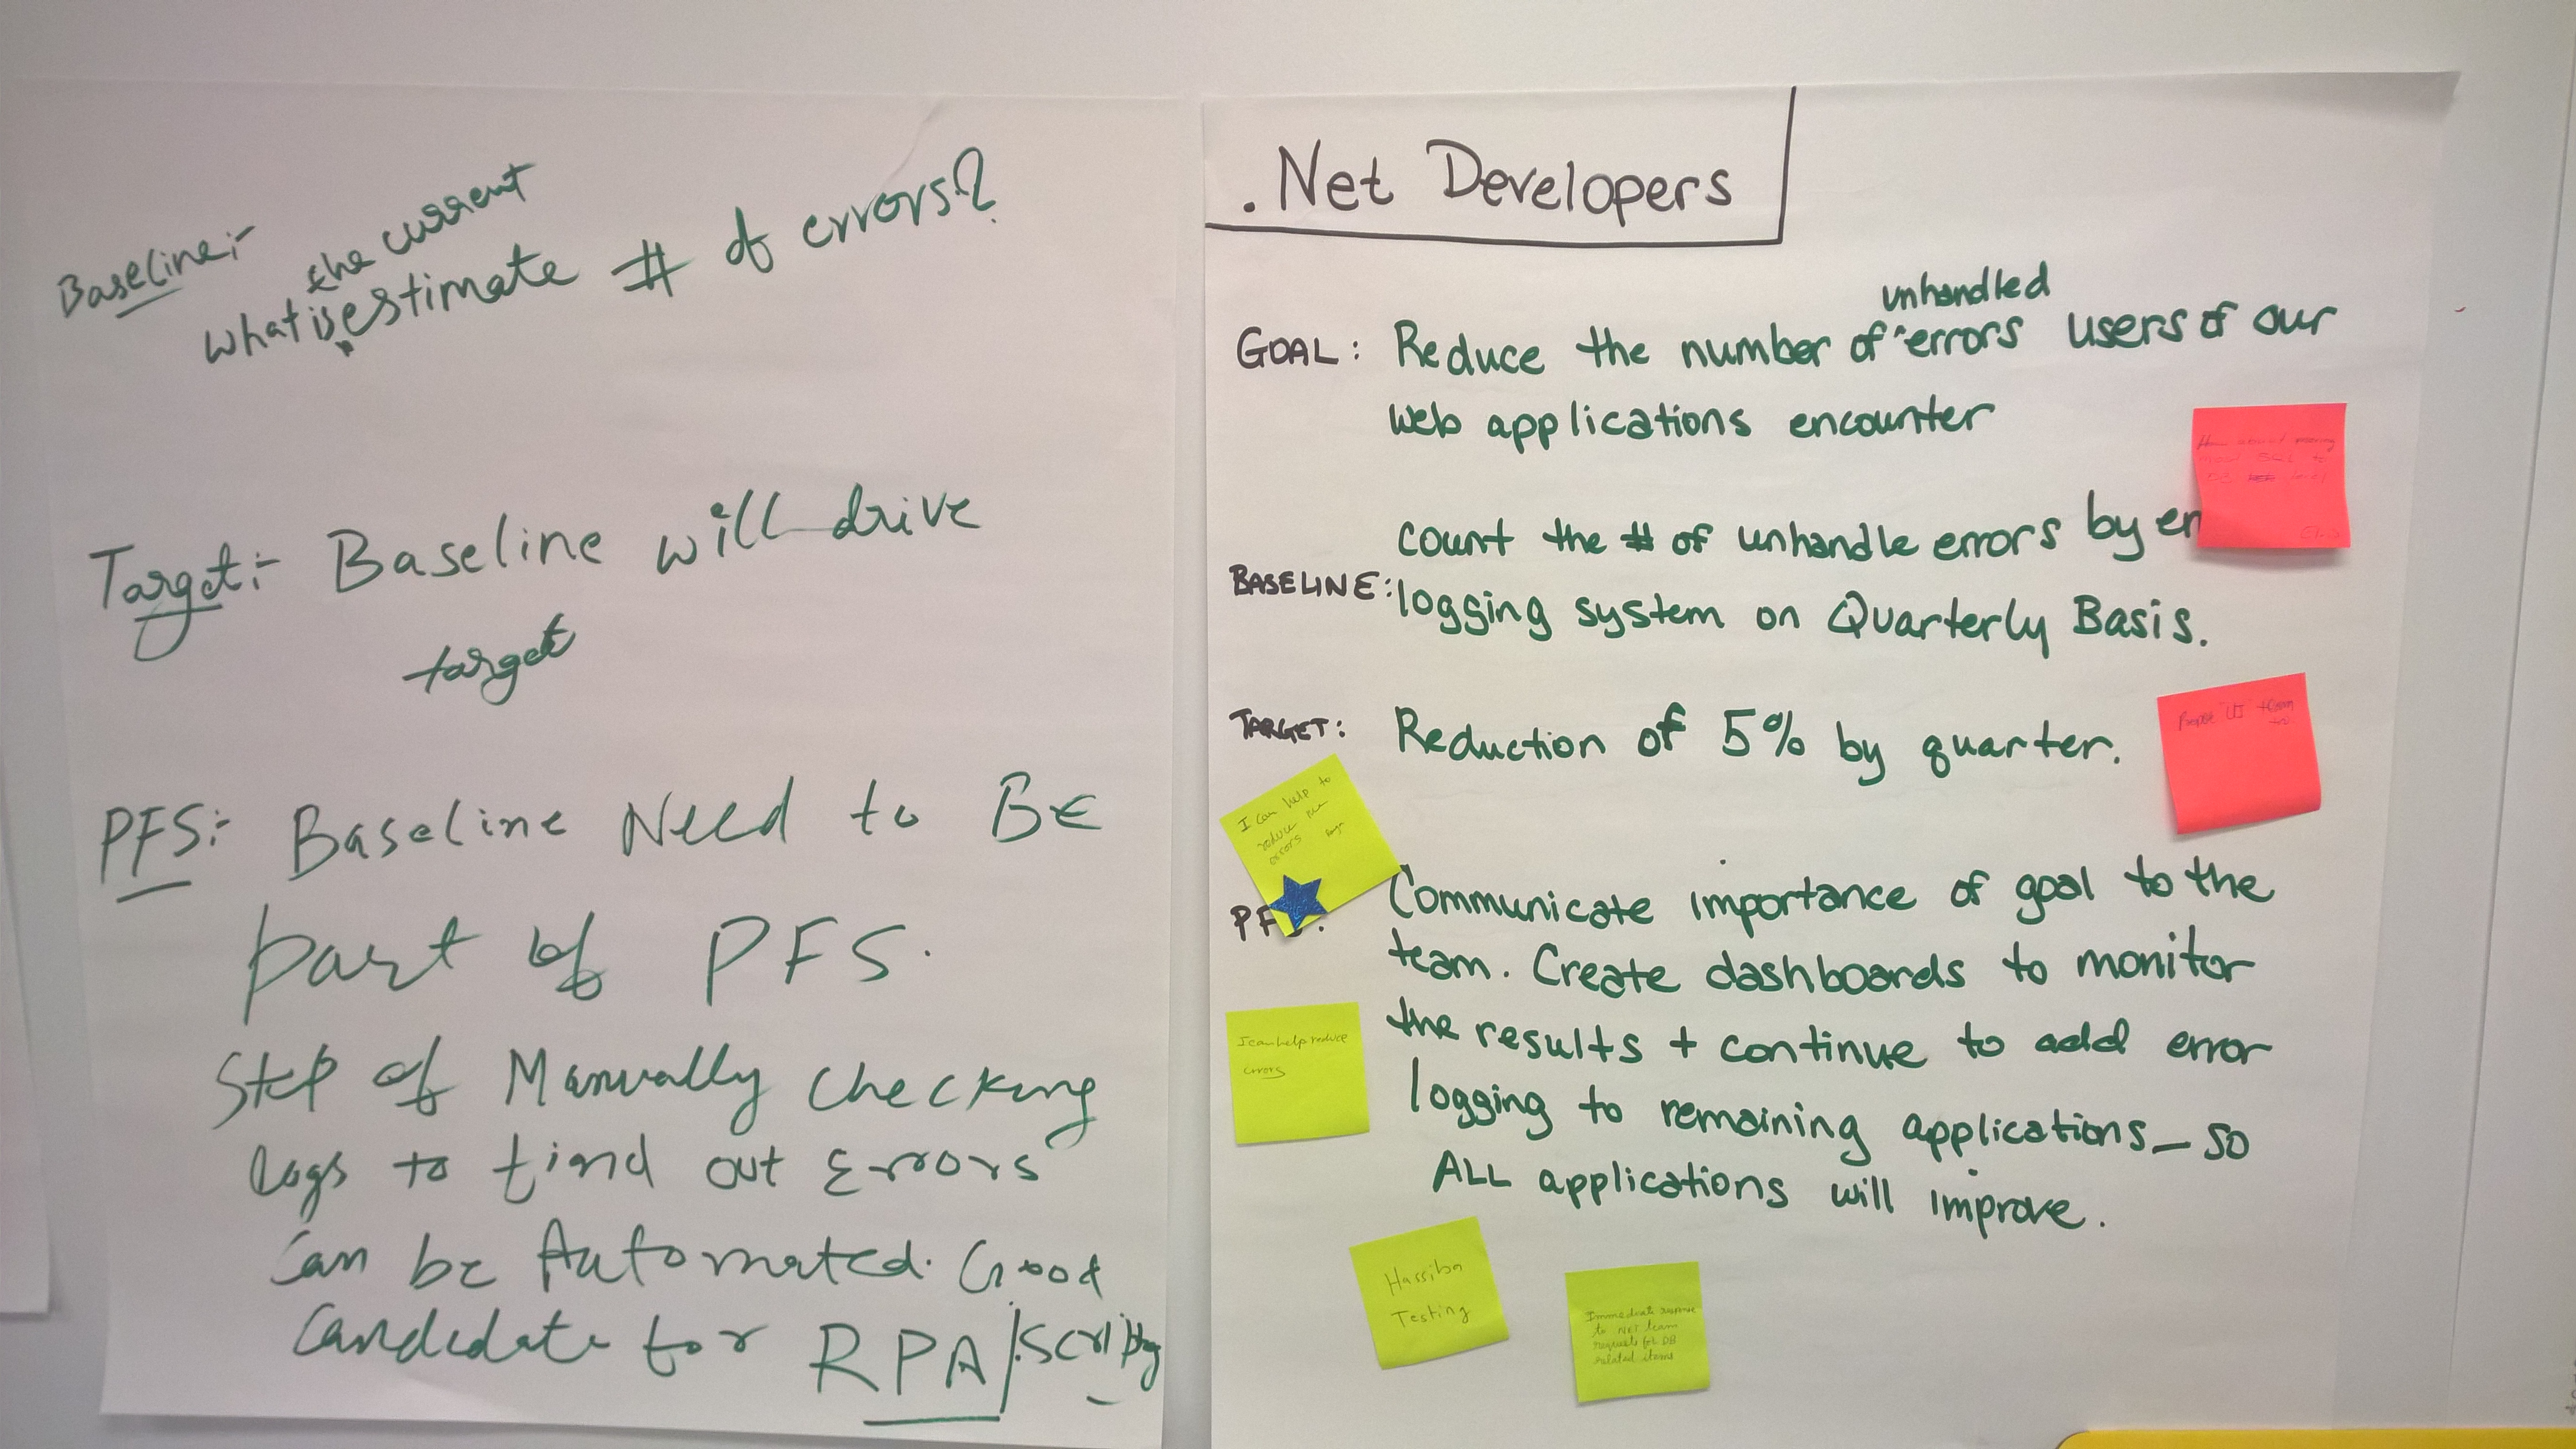 Baseline:-
the current
what is estimate # of errors?
Target:- Baseline will drive
target
PFS:- Baseline Need to BE
part of PFS.
Step of Manually checking
logs to find out Errors
Can be Automated. Good
Candidate for RPA/Scripting
.Net Developers
unhandled
GOAL: Reduce the number of errors users of our
web applications encounter
count the # of unhandle errors by er
BASELINE: logging system on Quarterly Basis.
TARGET: Reduction of 5% by quarter.
I can help to
reduce
errors
PF
Communicate importance of goal to the
team. Create dashboards to monitor
the results + continue to add error
logging to remaining applications - so
ALL applications will improve.
I can help reduce
errors
Hassiba
Testing
Immediate response
to NET team
requests for DB
related items
about moving
SQL to
DB level
UI team